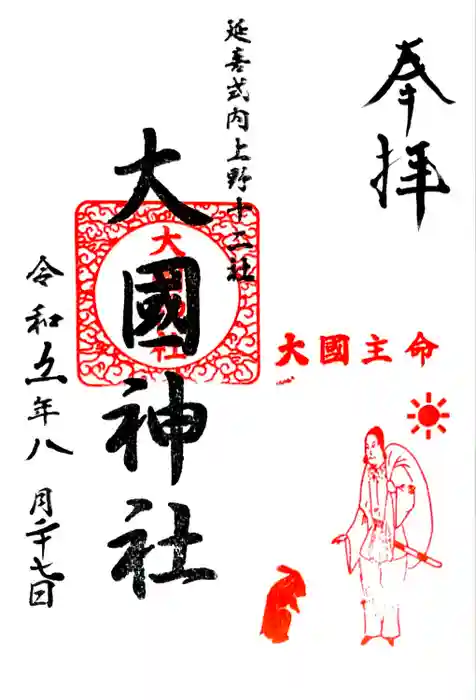 奉拝
延喜式内上野十二社
大國主命
大國神社
令和五年八月二十七日